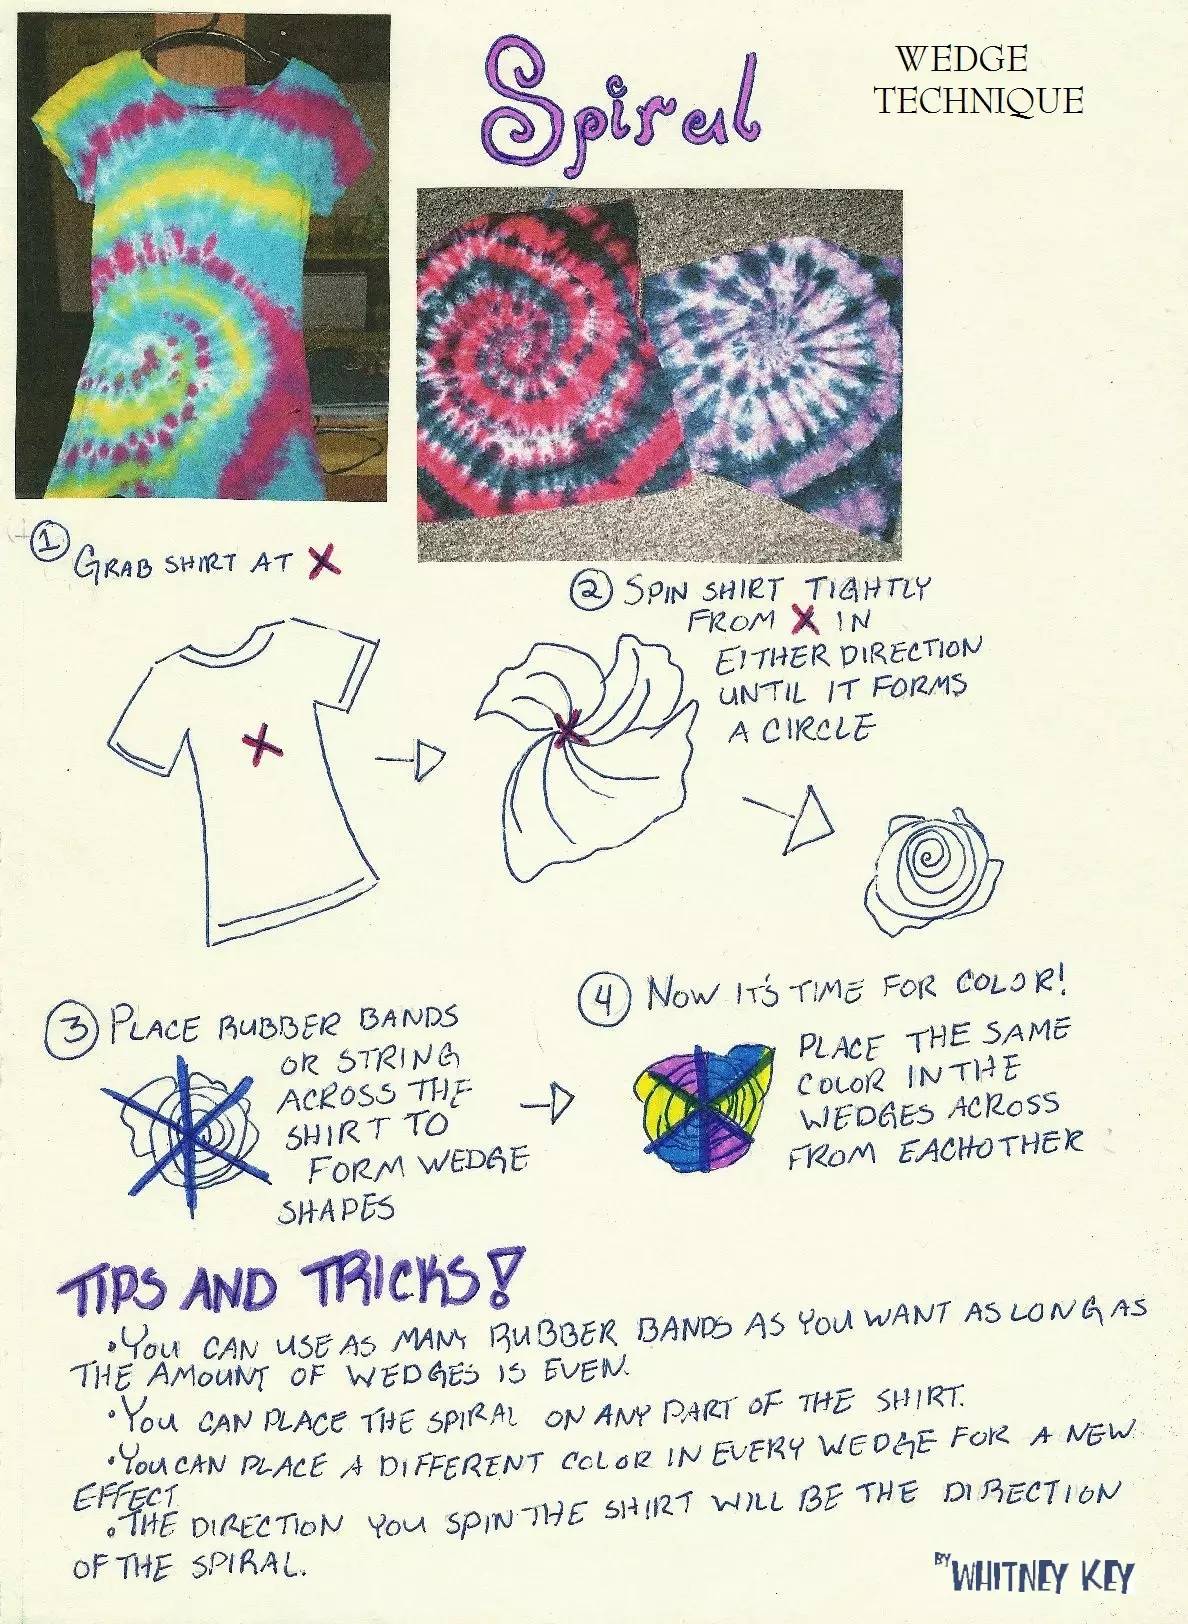 Spiral
WEDGE
TECHNIQUE
1 GRAB SHIRT AT X
2 SPIN SHIRT TIGHTLY
FROM X IN
EITHER DIRECTION
UNTIL IT FORMS
A CIRCLE
X
X
3 PLACE RUBBER BANDS
OR STRING
ACROSS THE
SHIRT TO
FORM WEDGE
SHAPES
4 NOW IT'S TIME FOR COLOR!
PLACE THE SAME
COLOR IN THE
WEDGES ACROSS
FROM EACHOTHER
TIPS AND TRICKS!
• YOU CAN USE AS MANY RUBBER BANDS AS YOU WANT AS LONG AS
THE AMOUNT OF WEDGES IS EVEN.
• YOU CAN PLACE THE SPIRAL ON ANY PART OF THE SHIRT.
• YOU CAN PLACE A DIFFERENT COLOR IN EVERY WEDGE FOR A NEW
EFFECT
• THE DIRECTION YOU SPIN THE SHIRT WILL BE THE DIRECTION
OF THE SPIRAL.
BY WHITNEY KEY